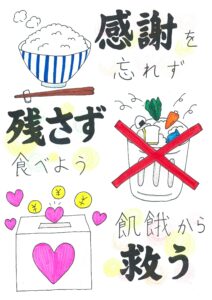 感謝を
忘れず
残さず
食べよう
¥ ¥ ¥
飢餓から
救う